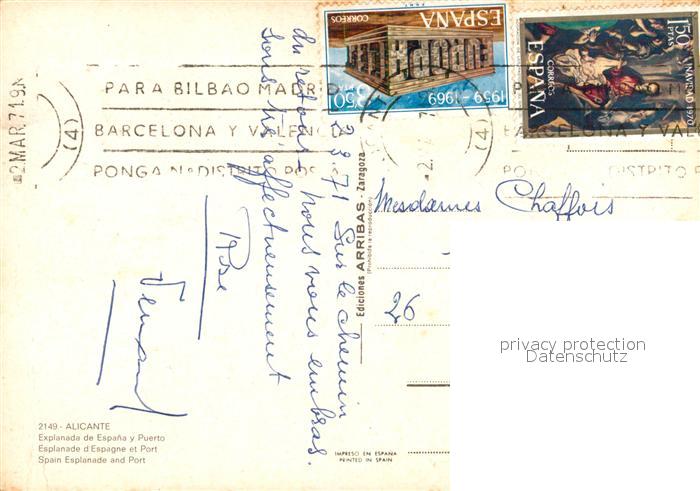 ESPAÑA
CORREOS
EUROPA CEPT
3,50
PTAS
1959-1969
1,50
PTAS
NAVIDAD 1970
CORREOS
ESPAÑA
2 MAR. 71
(4)
PARA BILBAO MADRID
BARCELONA Y VALENC
PONGA Nº DISTRITO POS
(4)
PARA
BARCELONA Y VAL
DISTRITO P
2.3.71 Sur le chemin
du retour nous vous embras.
sons très affectueusement
Mesdames Chaffois
26
Ediciones ARRIBAS - Zaragoza
(Prohibida la reproducción)
privacy protection
Datenschutz
2149.- ALICANTE
Explanada de España y Puerto
Esplanade d'Espagne et Port
Spain Esplanade and Port
IMPRESO EN ESPAÑA
PRINTED IN SPAIN